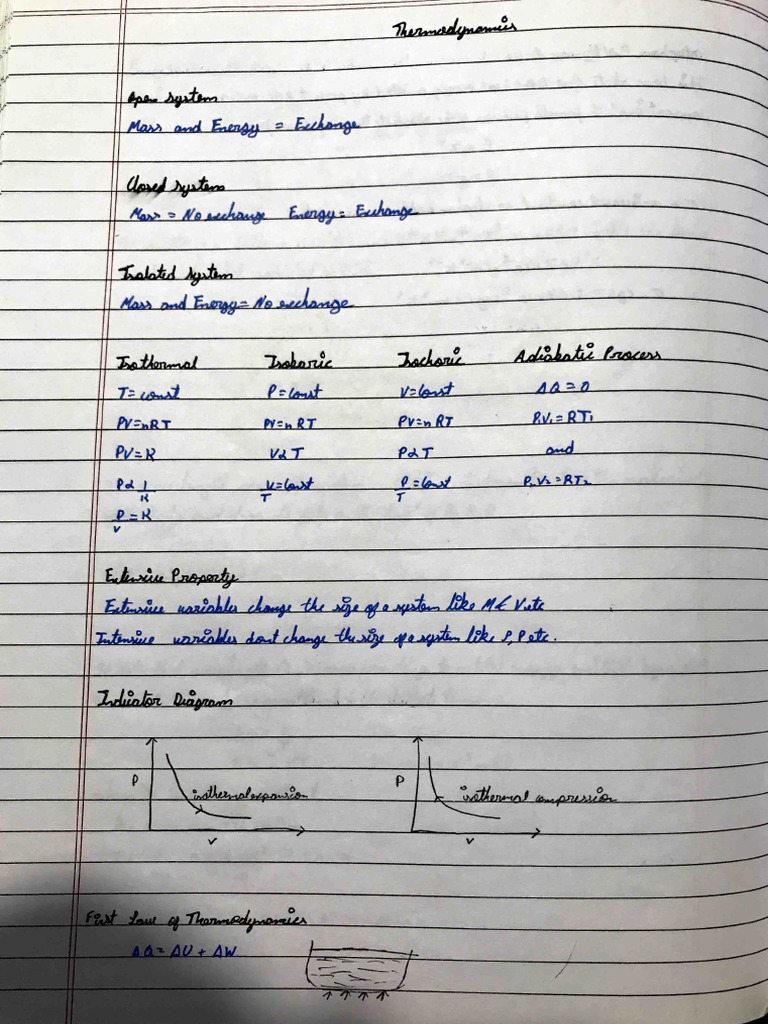 Thermodynamics
Open system
Mass and Energy = Exchange
Closed system
Mass = No exchange Energy = Exchange
Isolated system
Mass and Energy = No exchange
Isothermal Isobaric Isochoric Adiabatic Process
T = const P = const V = const ΔQ = 0
PV = nRT PV = nRT PV = nRT P₁V₁ = RT₁
PV = K V α T P α T and
P α 1/K V/T = const P/T = const P₂V₂ = RT₂
P/V = K
Extensive Property
Extensive variables change the size of a system like M & V, etc
Intensive variables dont change the size of a system like P, etc.
Indicator Diagram
P isothermal expansion P isothermal compression
V V
First Law of Thermodynamics
ΔQ = ΔU + ΔW